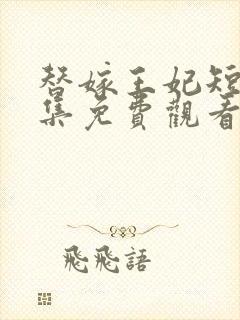 替嫁王妃短
集免費觀看
飛飛語